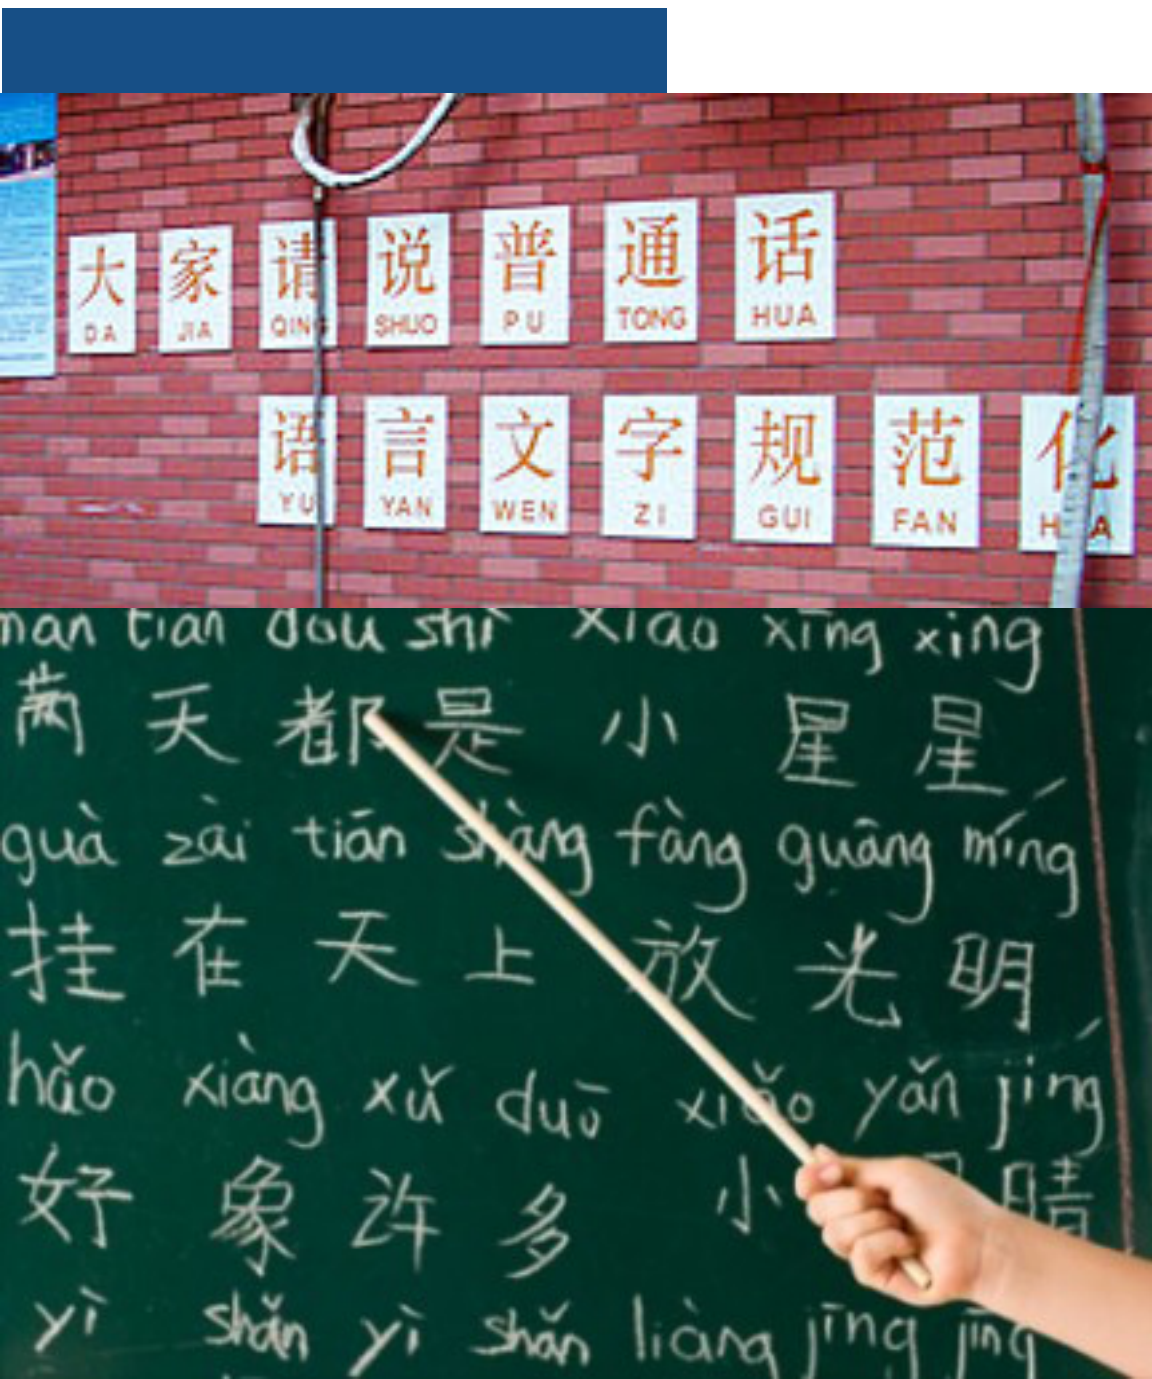 大家请说普通话
DA JIA QING SHUO PU TONG HUA
语言文字规范化
YU YAN WEN ZI GUI FAN HUA
man tian dou shi xiao xīng xing
满天都是小星星
guà zài tiān shàng fàng guāng míng
挂在天上放光明
hǎo xiàng xǔ duō xiǎo yǎn jing
好象许多小 睛
yì shǎn yì shǎn liàng jīng jīng